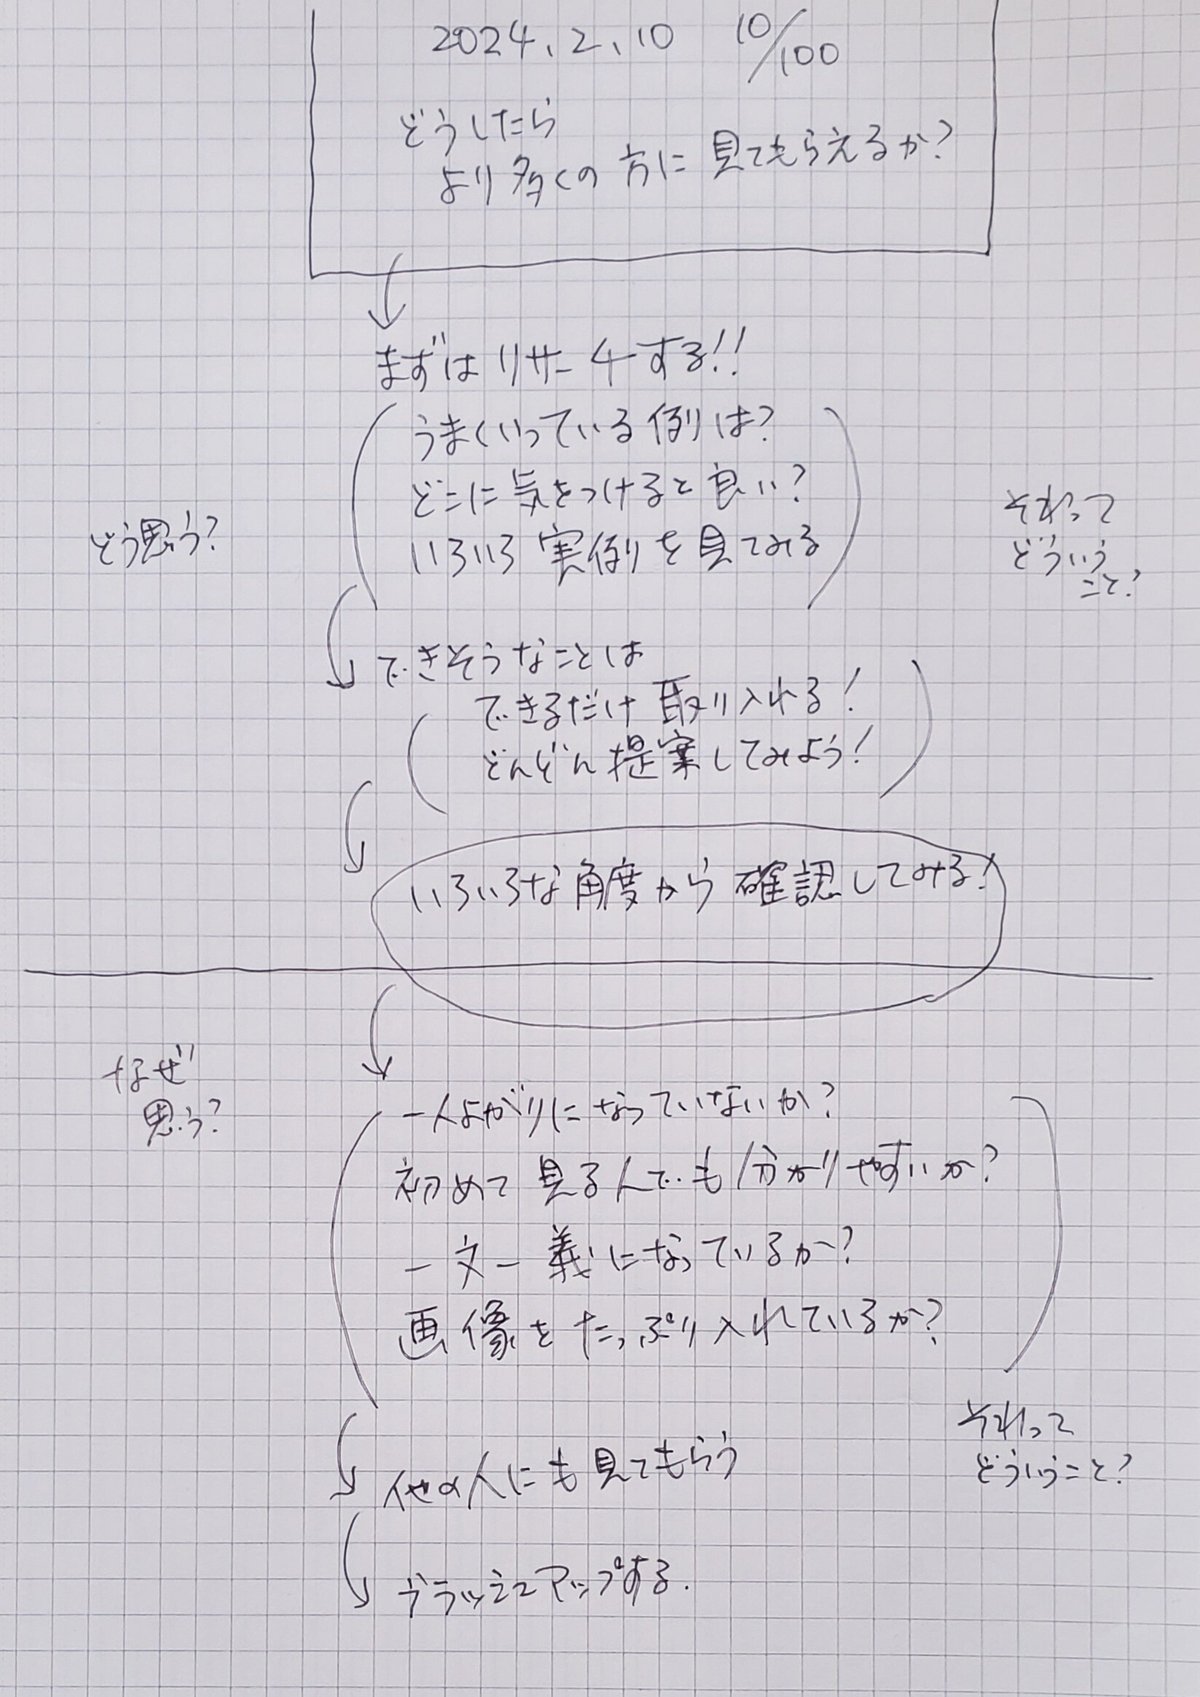 2024.2.10 10/100
どうしたら
より多くの方に見てもらえるか?
まずはリサーチする!!
うまくいっている例は?
どこに気をつけると良い?
いろいろ実例を見てみる
どう思う?
それって
どういう
こと?
できそうなことは
できるだけ取り入れる!
どんどん提案してみよう!
いろいろな角度から確認してみる!
なぜ
思う?
一人よがりになっていないか?
初めて見る人でも分かりやすいか?
一文一義になっているか?
画像をたっぷり入れているか?
それって
どういうこと?
他の人にも見てもらう
ブラッシュアップする.